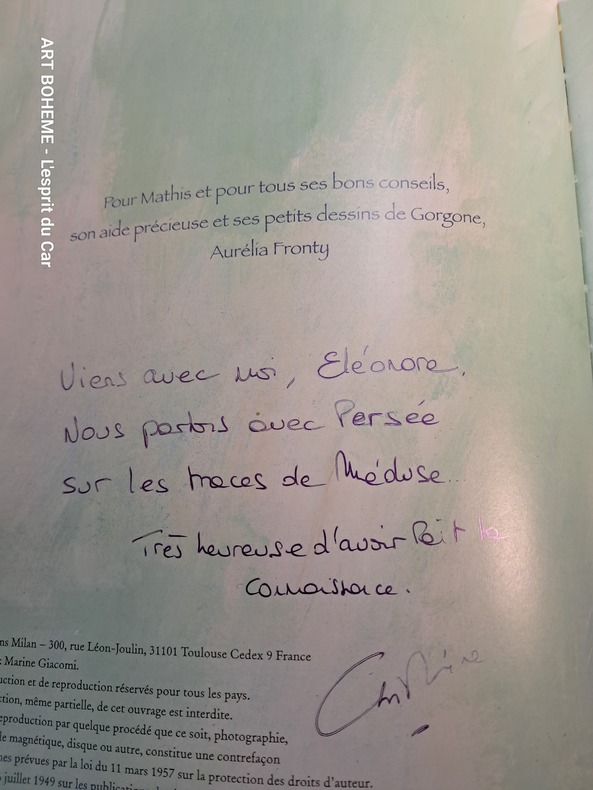 ART BOHEME - L'esprit du Car
Pour Mathis et pour tous ses bons conseils,
son aide précieuse et ses petits dessins de Gorgone,
Aurélia Fronty
Viens avec moi, Eléonore,
Nous partons avec Persée
sur les traces de Méduse...
Très heureuse d'avoir fait ta
connaissance.
ns Milan – 300, rue Léon-Joulin, 31101 Toulouse Cedex 9 France
: Marine Giacomi.
uction et de reproduction réservés pour tous les pays.
ction, même partielle, de cet ouvrage est interdite.
eproduction par quelque procédé que ce soit, photographie,
de magnétique, disque ou autre, constitue une contrefaçon
nes prévues par la loi du 11 mars 1957 sur la protection des droits d'auteur.
juillet 1949 sur les publications